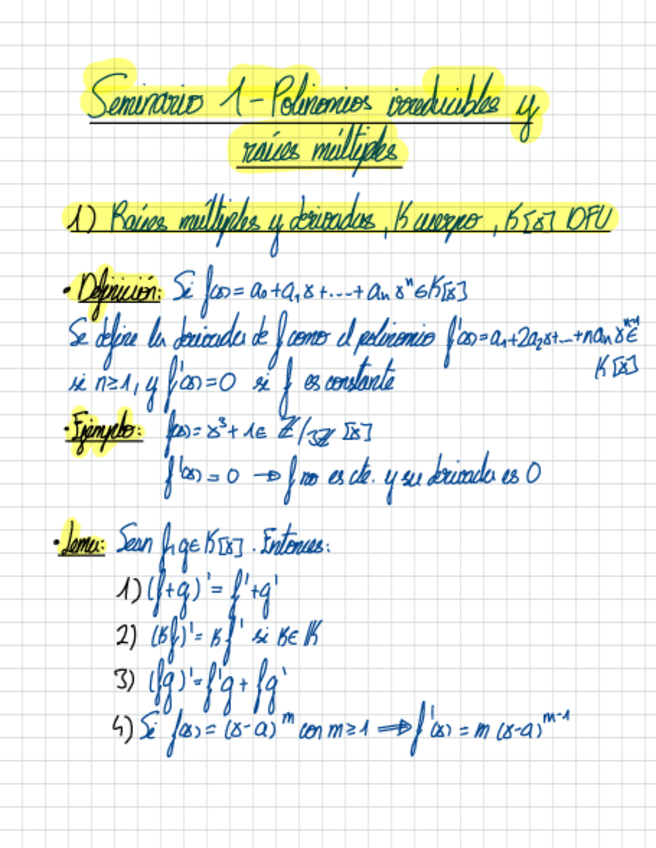 Seminario 1 - Polinomios irreducibles y
raíces múltiples
1) Raíces múltiples y derivadas, K cuerpo, K[x] DFU
• Definición: Si f(x) = a₀ + a₁x + .... + aₙxⁿ ∈ K[x]
Se define la derivada de f como el polinomio f'(x) = a₁ + 2a₂x + ... + naₙxⁿ⁻¹ ∈
K[x]
si n ≥ 1, y f'(x) = 0 si f es constante
• Ejemplo: f(x) = x³ + 1 ∈ ℤ/3ℤ [x]
f'(x) = 0 → f no es cte. y su derivada es 0
• Lema: Sean f, g ∈ K[x]. Entonces:
1) (f+g)' = f' + g'
2) (kf)' = kf' si k ∈ K
3) (fg)' = f'g + fg'
4) Si f(x) = (x-a)ᵐ con m ≥ 1 ⟹ f'(x) = m(x-a)ᵐ⁻¹